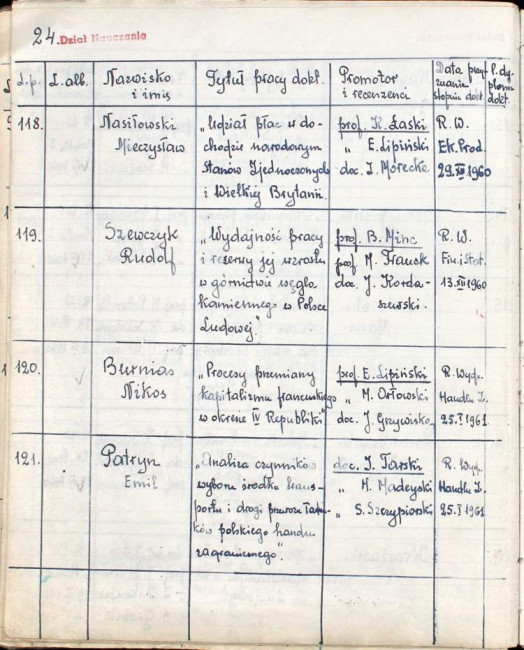 24. Dział Nauczania
L.p. L. alb. Nazwisko i imię Tytuł pracy dokt. Promotor i recenzenci Data przyznania stopnia dokt. l. dyplomu dokt.
118. Nasiłowski Mieczysław
„Udział płac w do-
chodzie narodowym
Stanów Zjednoczonych
i Wielkiej Brytanii.
prof. K. Łaski
„ E. Lipiński
doc. Z. Morecka
R. W.
Ek. Prod.
29.XI 1960
119. Szewczyk Rudolf
„Wydajność pracy
i rezerwy jej wzrostu
w górnictwie węgla
kamiennego w Polsce
Ludowej."
prof. B. Minc
prof M. Frank
doc. J. Korda-
szewski.
R. W.
Fin. i Stat.
13.XII 1960
120. Burnias Nikos
„Procesy przemiany
kapitalizmu francuskiego
w okresie IV Republiki"
prof. E. Lipiński
„ M. Orłowski
doc. J. Grzywicka
R. Wydz.
Handlu Z.
25.I 1961.
121. Patryn Emil
„Analiza czynników
wyboru środka trans-
portu i drogi przewozu ładun-
ków polskiego handlu
zagranicznego".
doc. I. Tarski
„ M. Madeyski
„ S. Szczypiorski
R. Wydz.
Handlu Z.
25.I 1961